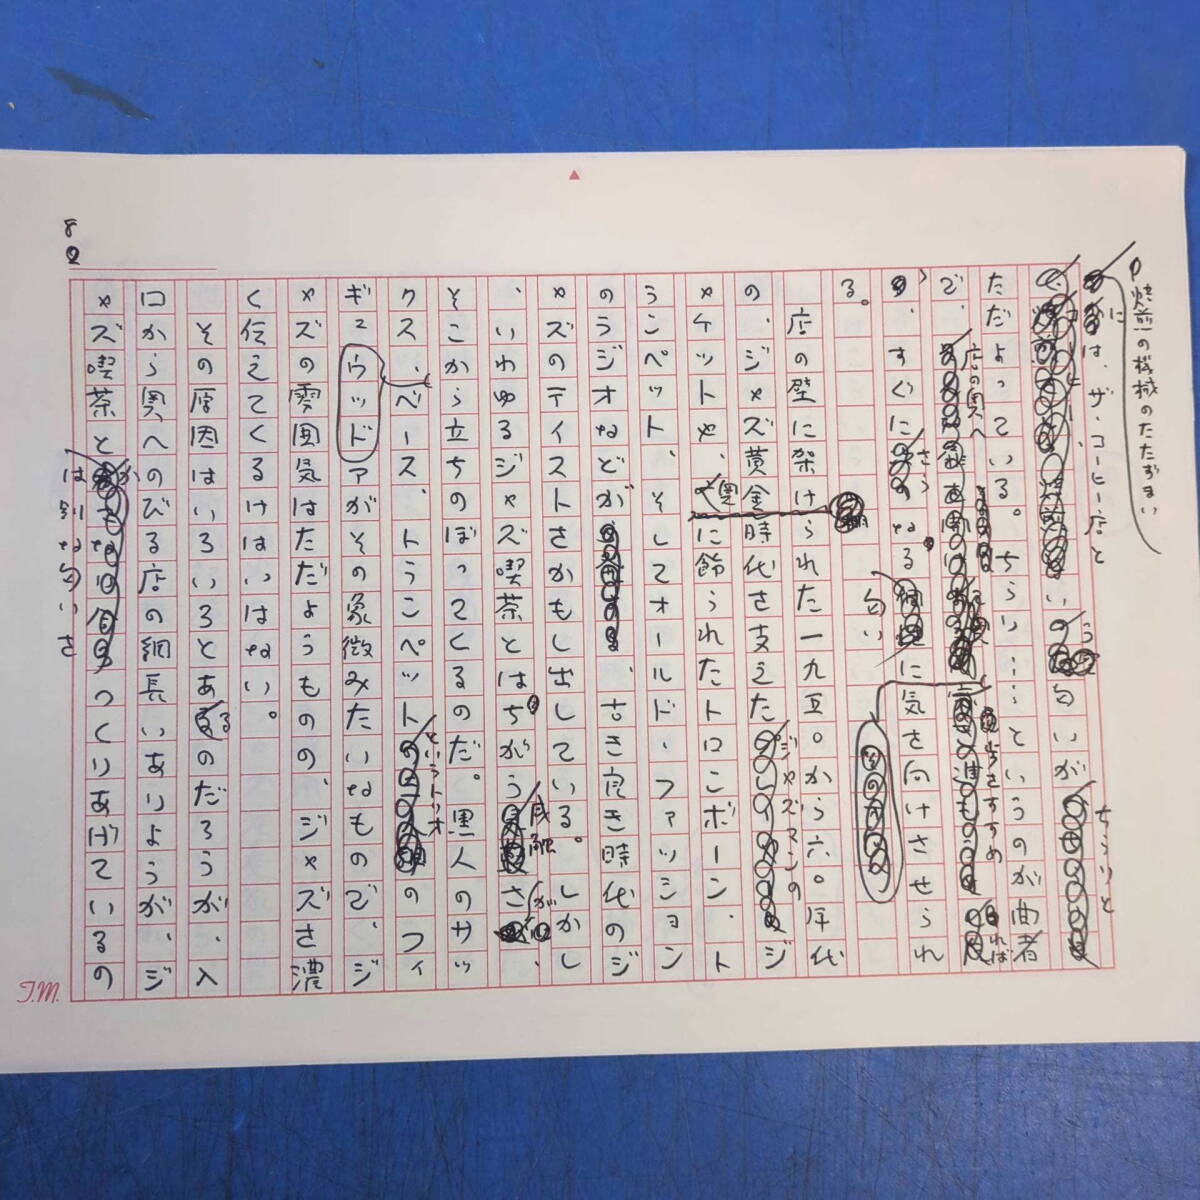 焙煎の機械のたたずまい
には、ザ・コーヒー店と
い
う匂いが
ちらりと
ただよっている。ちらり……というのが曲者
で、
店の奥へ
歩をすすめ
れば
、すぐに
さら
なる
匂い
に気を向けさせられ
る。
店の壁に架けられた一九五〇から六〇年代
の、ジャズ黄金時代を支えた
ジャズマンの
ジ
ャケットや、
奥
に飾られたトロンボーン、ト
ランペット、そしてオールド・ファッション
のラジオなどが
、古き良き時代のジ
ャズのテイストをかもし出している。しかし
、いわゆるジャズ喫茶とはちがう
感触
が
、
そこから立ちのぼってくるのだ。黒人のサッ
クス、ベース、トランペット
というトリオ
のフィ
ギュアがその象徴みたいなもので、ジ
ウッド
ャズの雰囲気はただようものの、ジャズを濃
く伝えてくるけはいはない。
その原因はいろいろとある
のだろうが、入
口から奥へのびる店の細長いありようが、ジ
ャズ喫茶と
か
は別な匂いを
つくりあげているの
8
T.M.